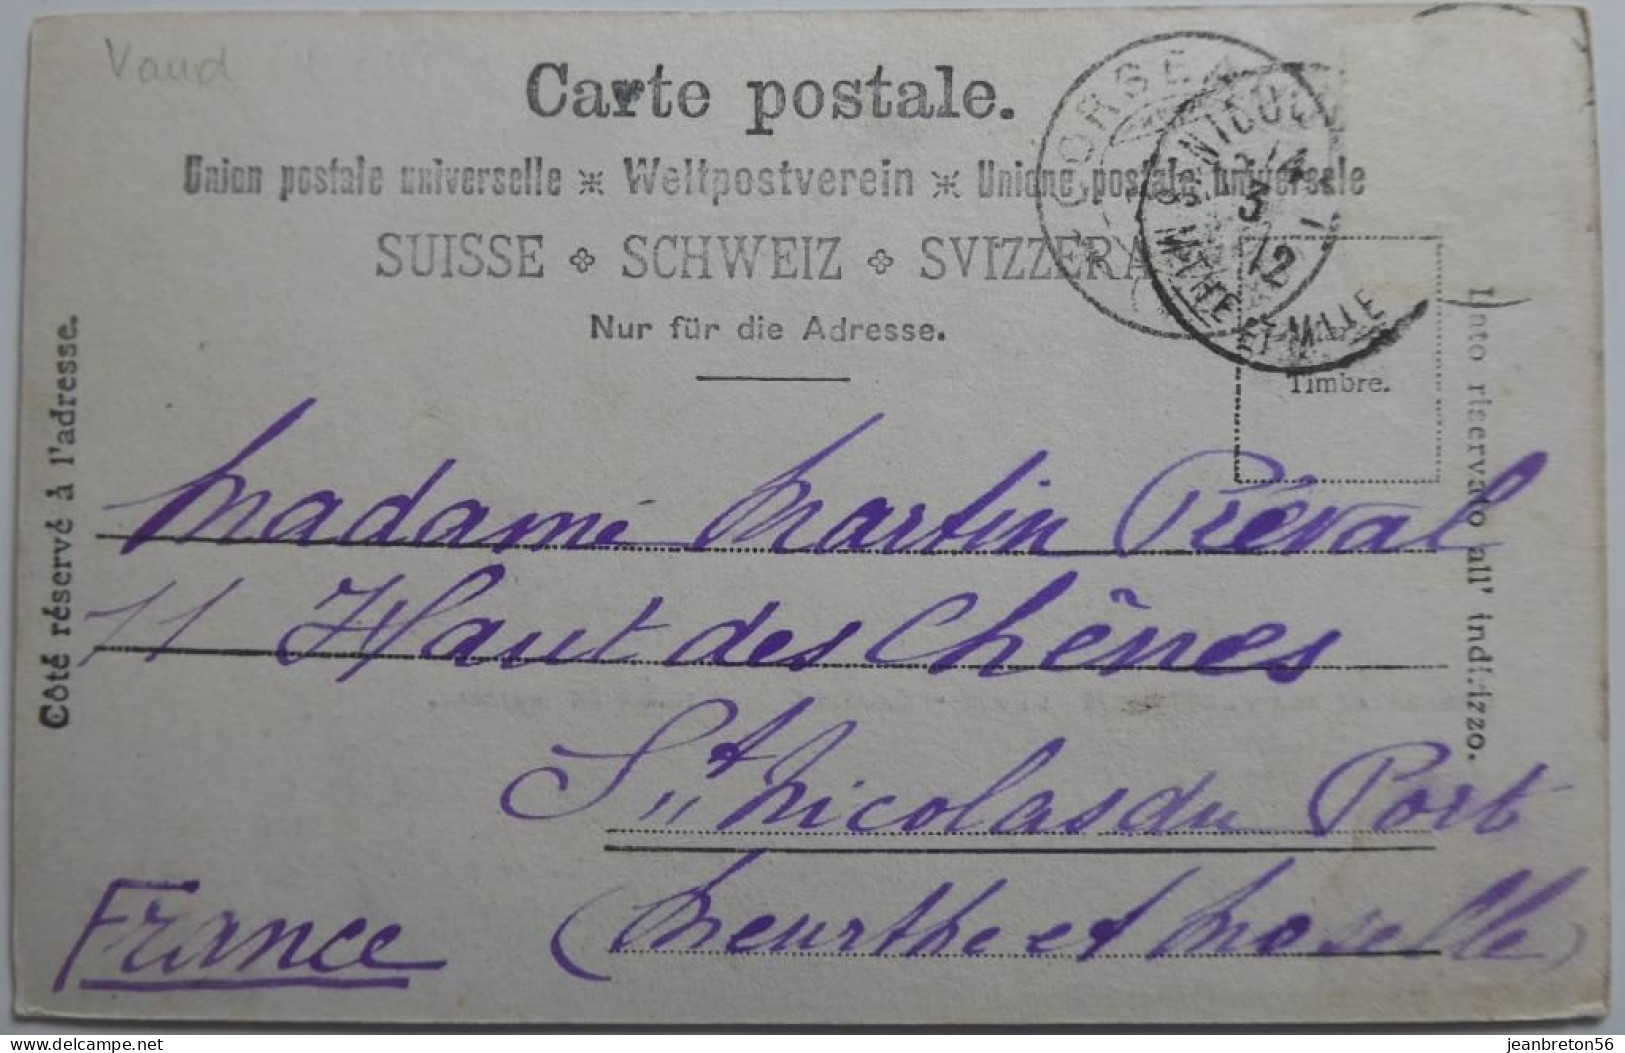 Vaud
Carte postale.
Union postale universelle ✳ Weltpostverein ✳ Unione postale universale
SUISSE ✤ SCHWEIZ ✤ SVIZZERA
Nur für die Adresse.
Timbre.
3
12
MTHE ET MLLE
Côté réservé à l'adresse.
Lato riservato all' indirizzo.
Madame Martin Préval
11 Haut des Chênes
St Nicolas du Port
(Meurthe et Moselle)
France
delcampe.net
jeanbreton56